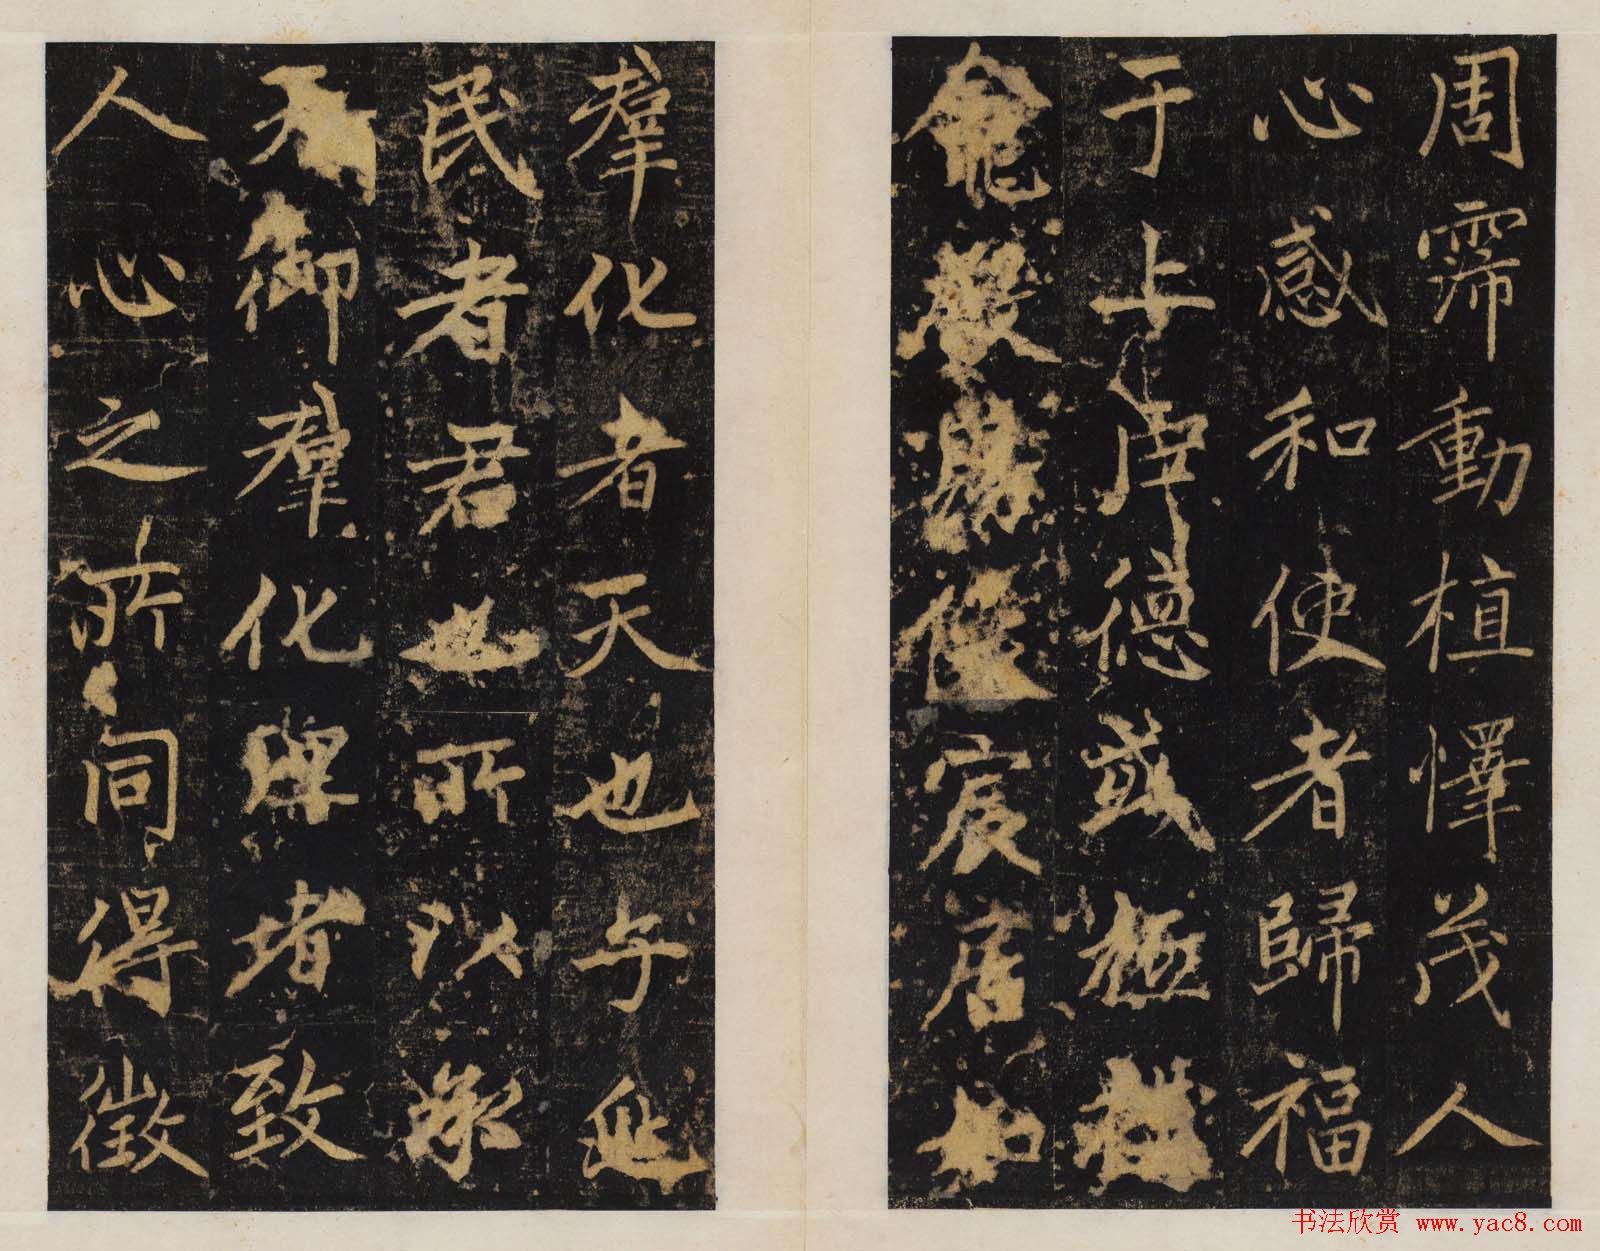 周霈動植懌茂人
心感和使者歸福
于上庠德或極
宸居如
羣化者天也与
民者君也所以承
天御羣化牌堵致
人心之所同得徵
书法欣赏 www.yac8.com